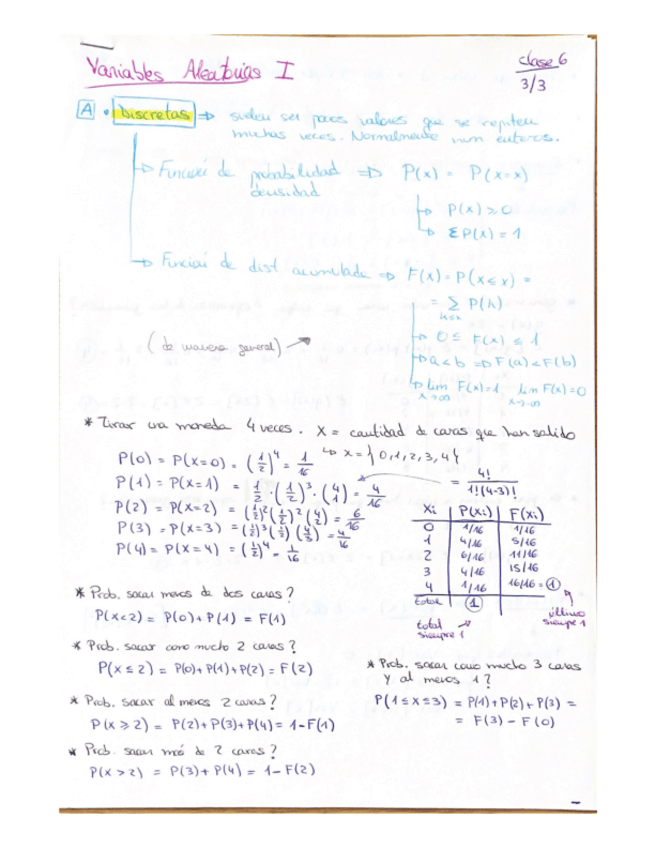 Variables Aleatorias I
clase 6
3/3
A • Discretas ⇒ suelen ser pocos valores que se repiten
muchas veces. Normalmente num enteros.
→ Función de probabilidad ⇒ P(x) = P(X=x)
densidad
→ P(x) ≥ 0
→ ΣP(x) = 1
→ Función de dist acumulada ⇒ F(x) = P(X ≤ x) =
= Σ P(h)
h≤x
(de manera general) →
→ 0 ≤ F(x) ≤ 1
→ a < b ⇒ F(a) < F(b)
→ lim F(x) = 1 lim F(x) = 0
x→∞ x→-∞
* Tirar una moneda 4 veces. X = cantidad de caras que han salido
↳ x = {0,1,2,3,4}
P(0) = P(X=0) = (1/2)^4 = 1/16
P(1) = P(X=1) = 1/2 · (1/2)^3 · (4 1) = 4/16
= 4!/1!(4-3)!
P(2) = P(X=2) = (1/2)^2 (1/2)^2 (4 2) = 6/16
P(3) = P(X=3) = (1/2)^3 (1/2) (4 3) = 4/16
P(4) = P(X=4) = (1/2)^4 = 1/16
Xi P(Xi) F(Xi)
0 1/16 1/16
1 4/16 5/16
2 6/16 11/16
3 4/16 15/16
4 1/16 16/16 = 1
total 1
total
siempre 1
último
siempre 1
* Prob. sacar menos de dos caras?
P(X<2) = P(0) + P(1) = F(1)
* Prob. sacar como mucho 2 caras?
P(X ≤ 2) = P(0) + P(1) + P(2) = F(2)
* Prob. sacar al menos 2 caras?
P(X ≥ 2) = P(2) + P(3) + P(4) = 1 - F(1)
* Prob. sacar más de 2 caras?
P(X > 2) = P(3) + P(4) = 1 - F(2)
* Prob. sacar como mucho 3 caras
y al menos 1?
P(1 ≤ X ≤ 3) = P(1) + P(2) + P(3) =
= F(3) - F(0)